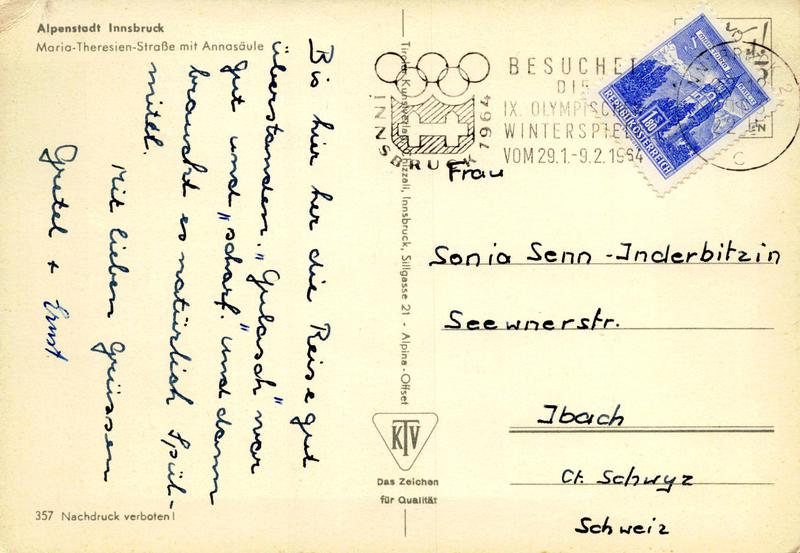 Alpenstadt Innsbruck
Maria-Theresien-Straße mit Annasäule
Bis hier her die Reise gut
überstanden. „Gulasch" war
gut und „scharf." und dann
braucht es natürlich Spül-
mittel.
Mit lieben Grüssen
Gretel + Ernst.
357 Nachdruck verboten!
Tiroler Kunstverlag Chizzali, Innsbruck, Sillgasse 21 - Alpina-Offset
KTV
Das Zeichen
für Qualität
INNSBRUCK 1964
BESUCHET
DIE
IX. OLYMPISCHEN
WINTERSPIELE
VOM 29.1.-9.2.1964
REPUBLIK ÖSTERREICH
1.80
C
Frau
Sonia Senn-Inderbitzin
Seewnerstr.
Ibach
Ct. Schwyz
Schweiz